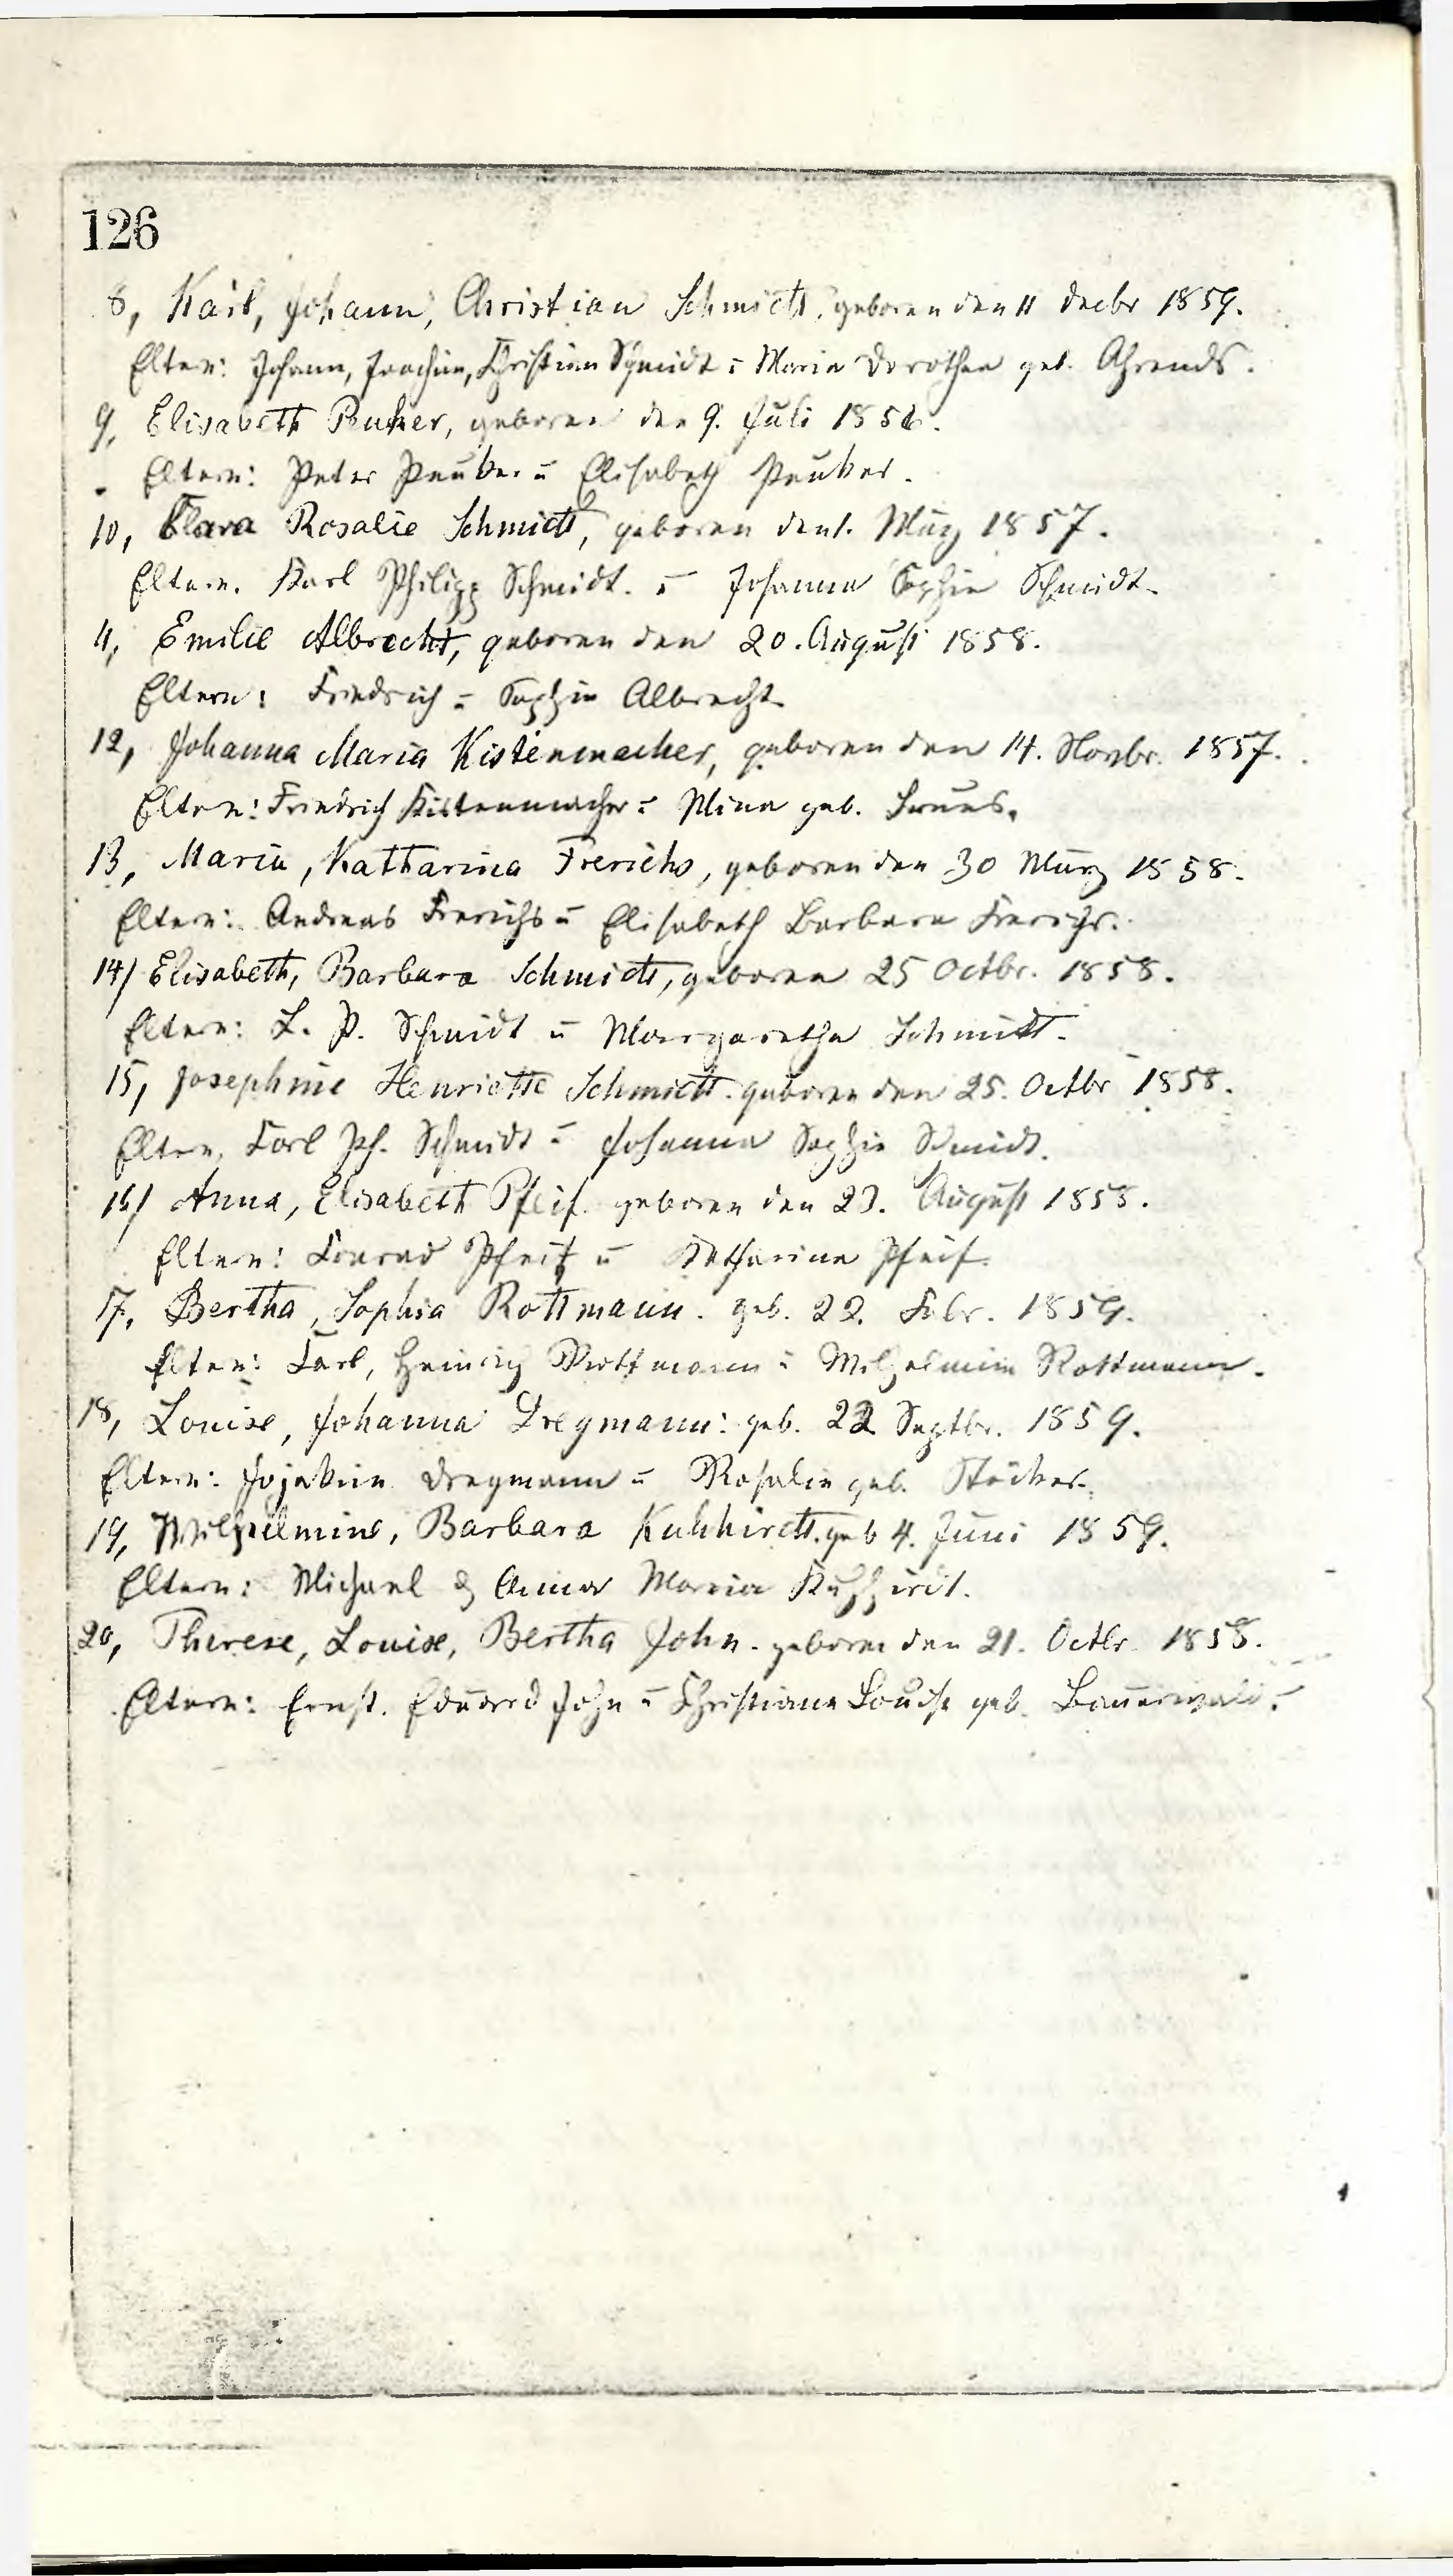 126
8, Karl, Johann, Christian Schmidt, geboren den 11 Decbr 1859.
Eltern: Johann, Joachim, Christian Schmidt u Maria Dorothea geb. Ahrends.
9, Elisabeth Peuker, geboren den 9. Juli 1856.
Eltern: Peter Peuker u Elisabeth Peuker.
10, Clara Rosalie Schmidt, geboren den 1. März 1857.
Eltern. Karl Philipp Schmidt. u Johanna Sophie Schmidt.
11, Emilie Albrecht, geboren den 20. August 1858.
Eltern: Friedrich u Sophie Albrecht
12, Johanna Maria Kistenmacher, geboren den 14. Novbr. 1857.
Eltern: Friedrich Kistenmacher u Mina geb.
13, Maria, Katharina Frerichs, geboren den 30 März 1858.
Eltern: Andreas Frerichs u Elisabeth Barbara Frerichs.
14/ Elisabeth, Barbara Schmidt, geboren 25 Octbr. 1858.
Eltern: L. P. Schmidt u Margaretha Schmidt.
15, Josephine Henriette Schmidt. geboren den 25. Octbr 1858.
Eltern, Carl Ph. Schmidt u Johanna Sophie Schmidt.
16/ Anna, Elisabeth Pfeif. geboren den 23. August 1858.
Eltern: Conrad Pfeif u Katharina Pfeif.
17, Bertha, Sophia Rottmann. geb. 22. Febr. 1859.
Eltern: Carl, Heinrich Rottmann u Wilhelmine Rottmann.
18, Louise, Johanna Dregmann: geb. 22 Septbr. 1859.
Eltern: Jojakim Dregmann u Rosalie geb. Stöcker.
19, Wilhelmine, Barbara Kuhhirdt. geb 4. Juni 1859.
Eltern: Michael & Anna Maria Kuhhirdt.
20, Therese, Louise, Bertha John. geboren den 21. Octbr. 1858.
Eltern: Ernst. Eduard John u Christiana Louise geb.